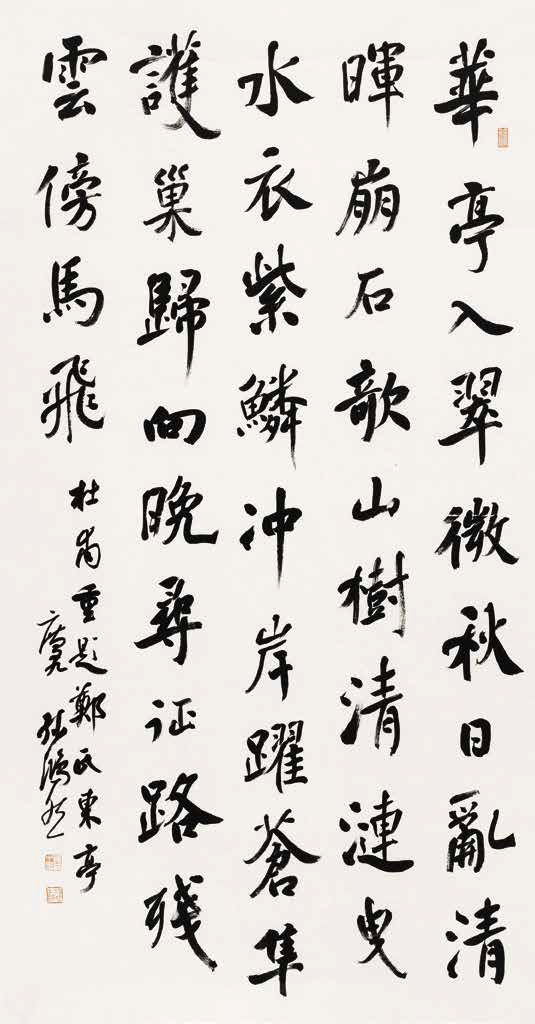 華亭入翠微秋日亂清
暉崩石欹山樹清漣曳
水衣紫鱗沖岸躍蒼隼
護巢歸向晚尋征路殘
雲傍馬飛
杜甫重題鄭氏東亭